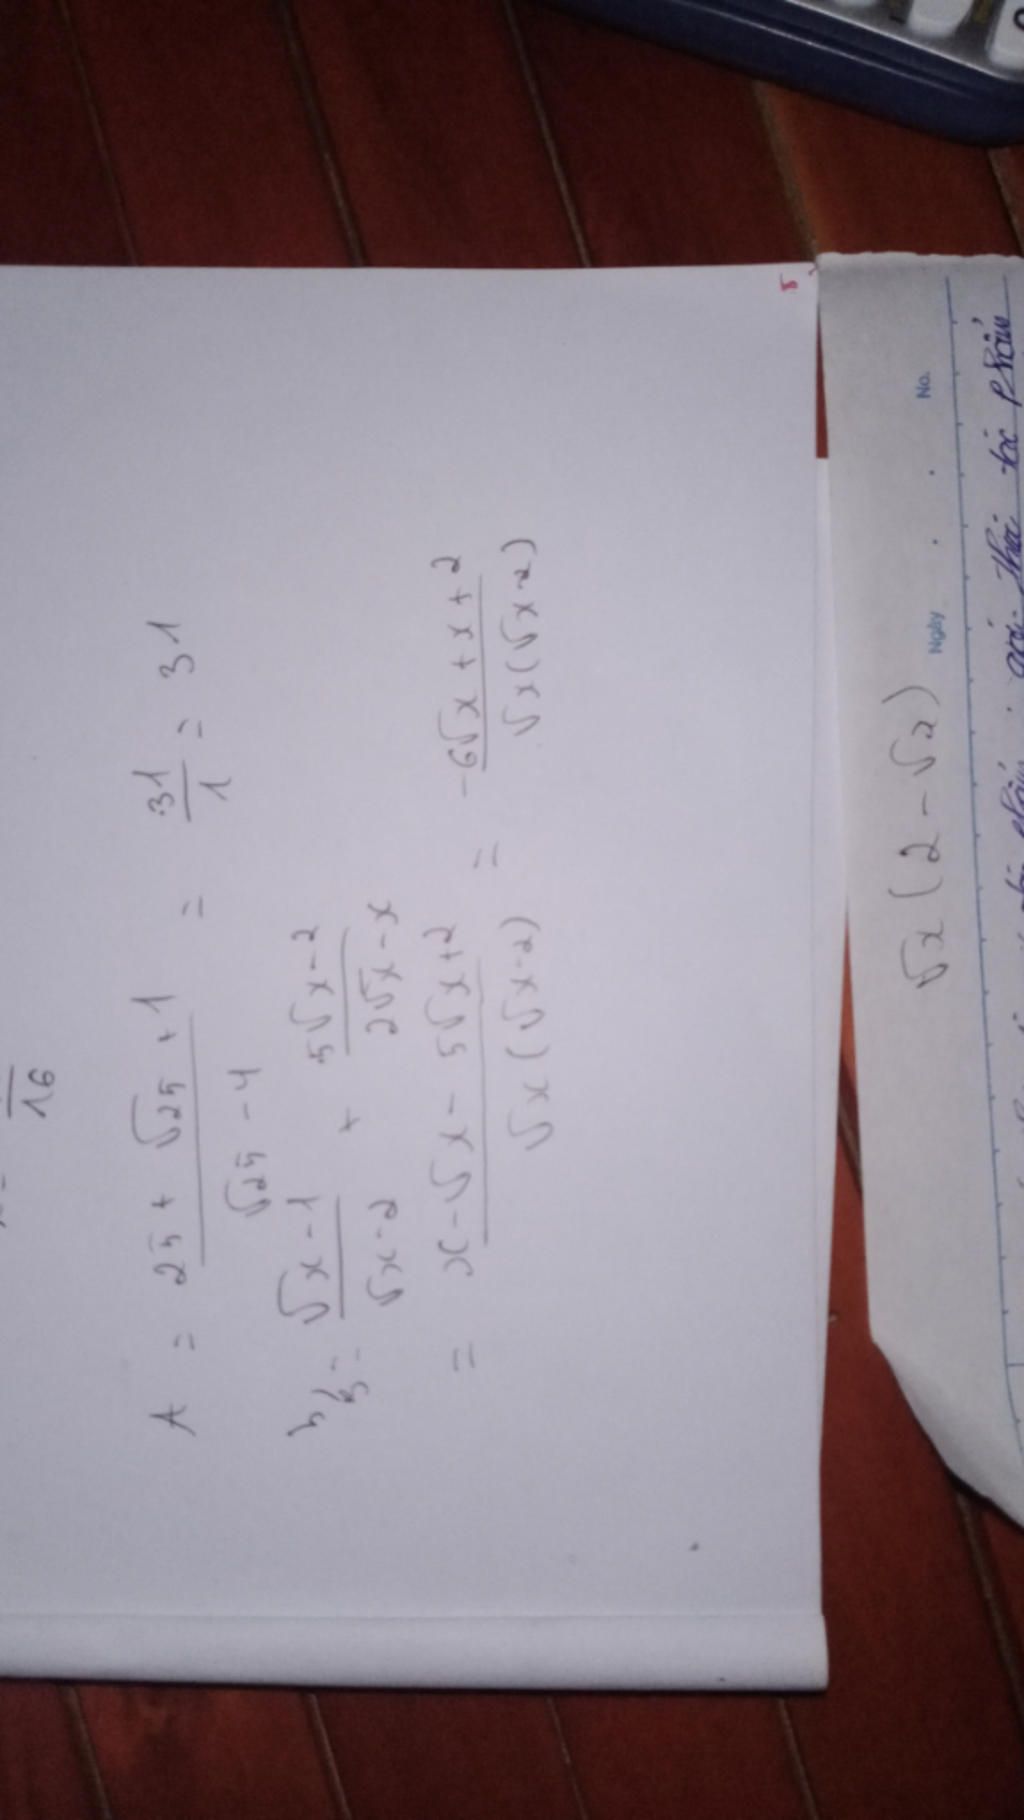 16
A = 25 + √25 + 1 / √25 - 4 = 31 / 1 = 31
B = √x - 1 / √x - 2 + 5√x - 2 / 2√x - x
= x - √x - 5√x + 2 / √x (√x - 2) = -6√x + x + 2 / √x (√x - 2)
√x (2 - √2)
Ngày . . . No.
phẩm